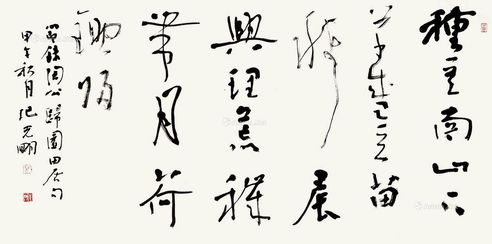 種豆南山下
草盛豆苗
稀晨
興理荒穢
帶月荷
鋤歸
節錄陶公歸園田居句
甲午秋月紀光明